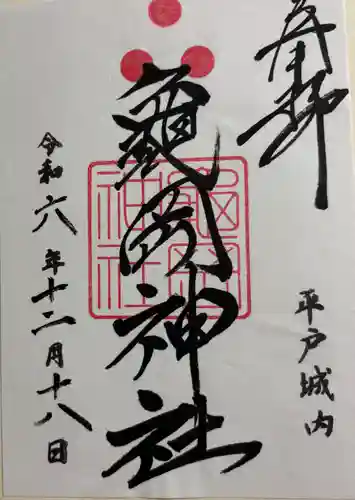 奉拝
平戸城内
亀岡神社
亀岡
神社
令和六年十二月十八日